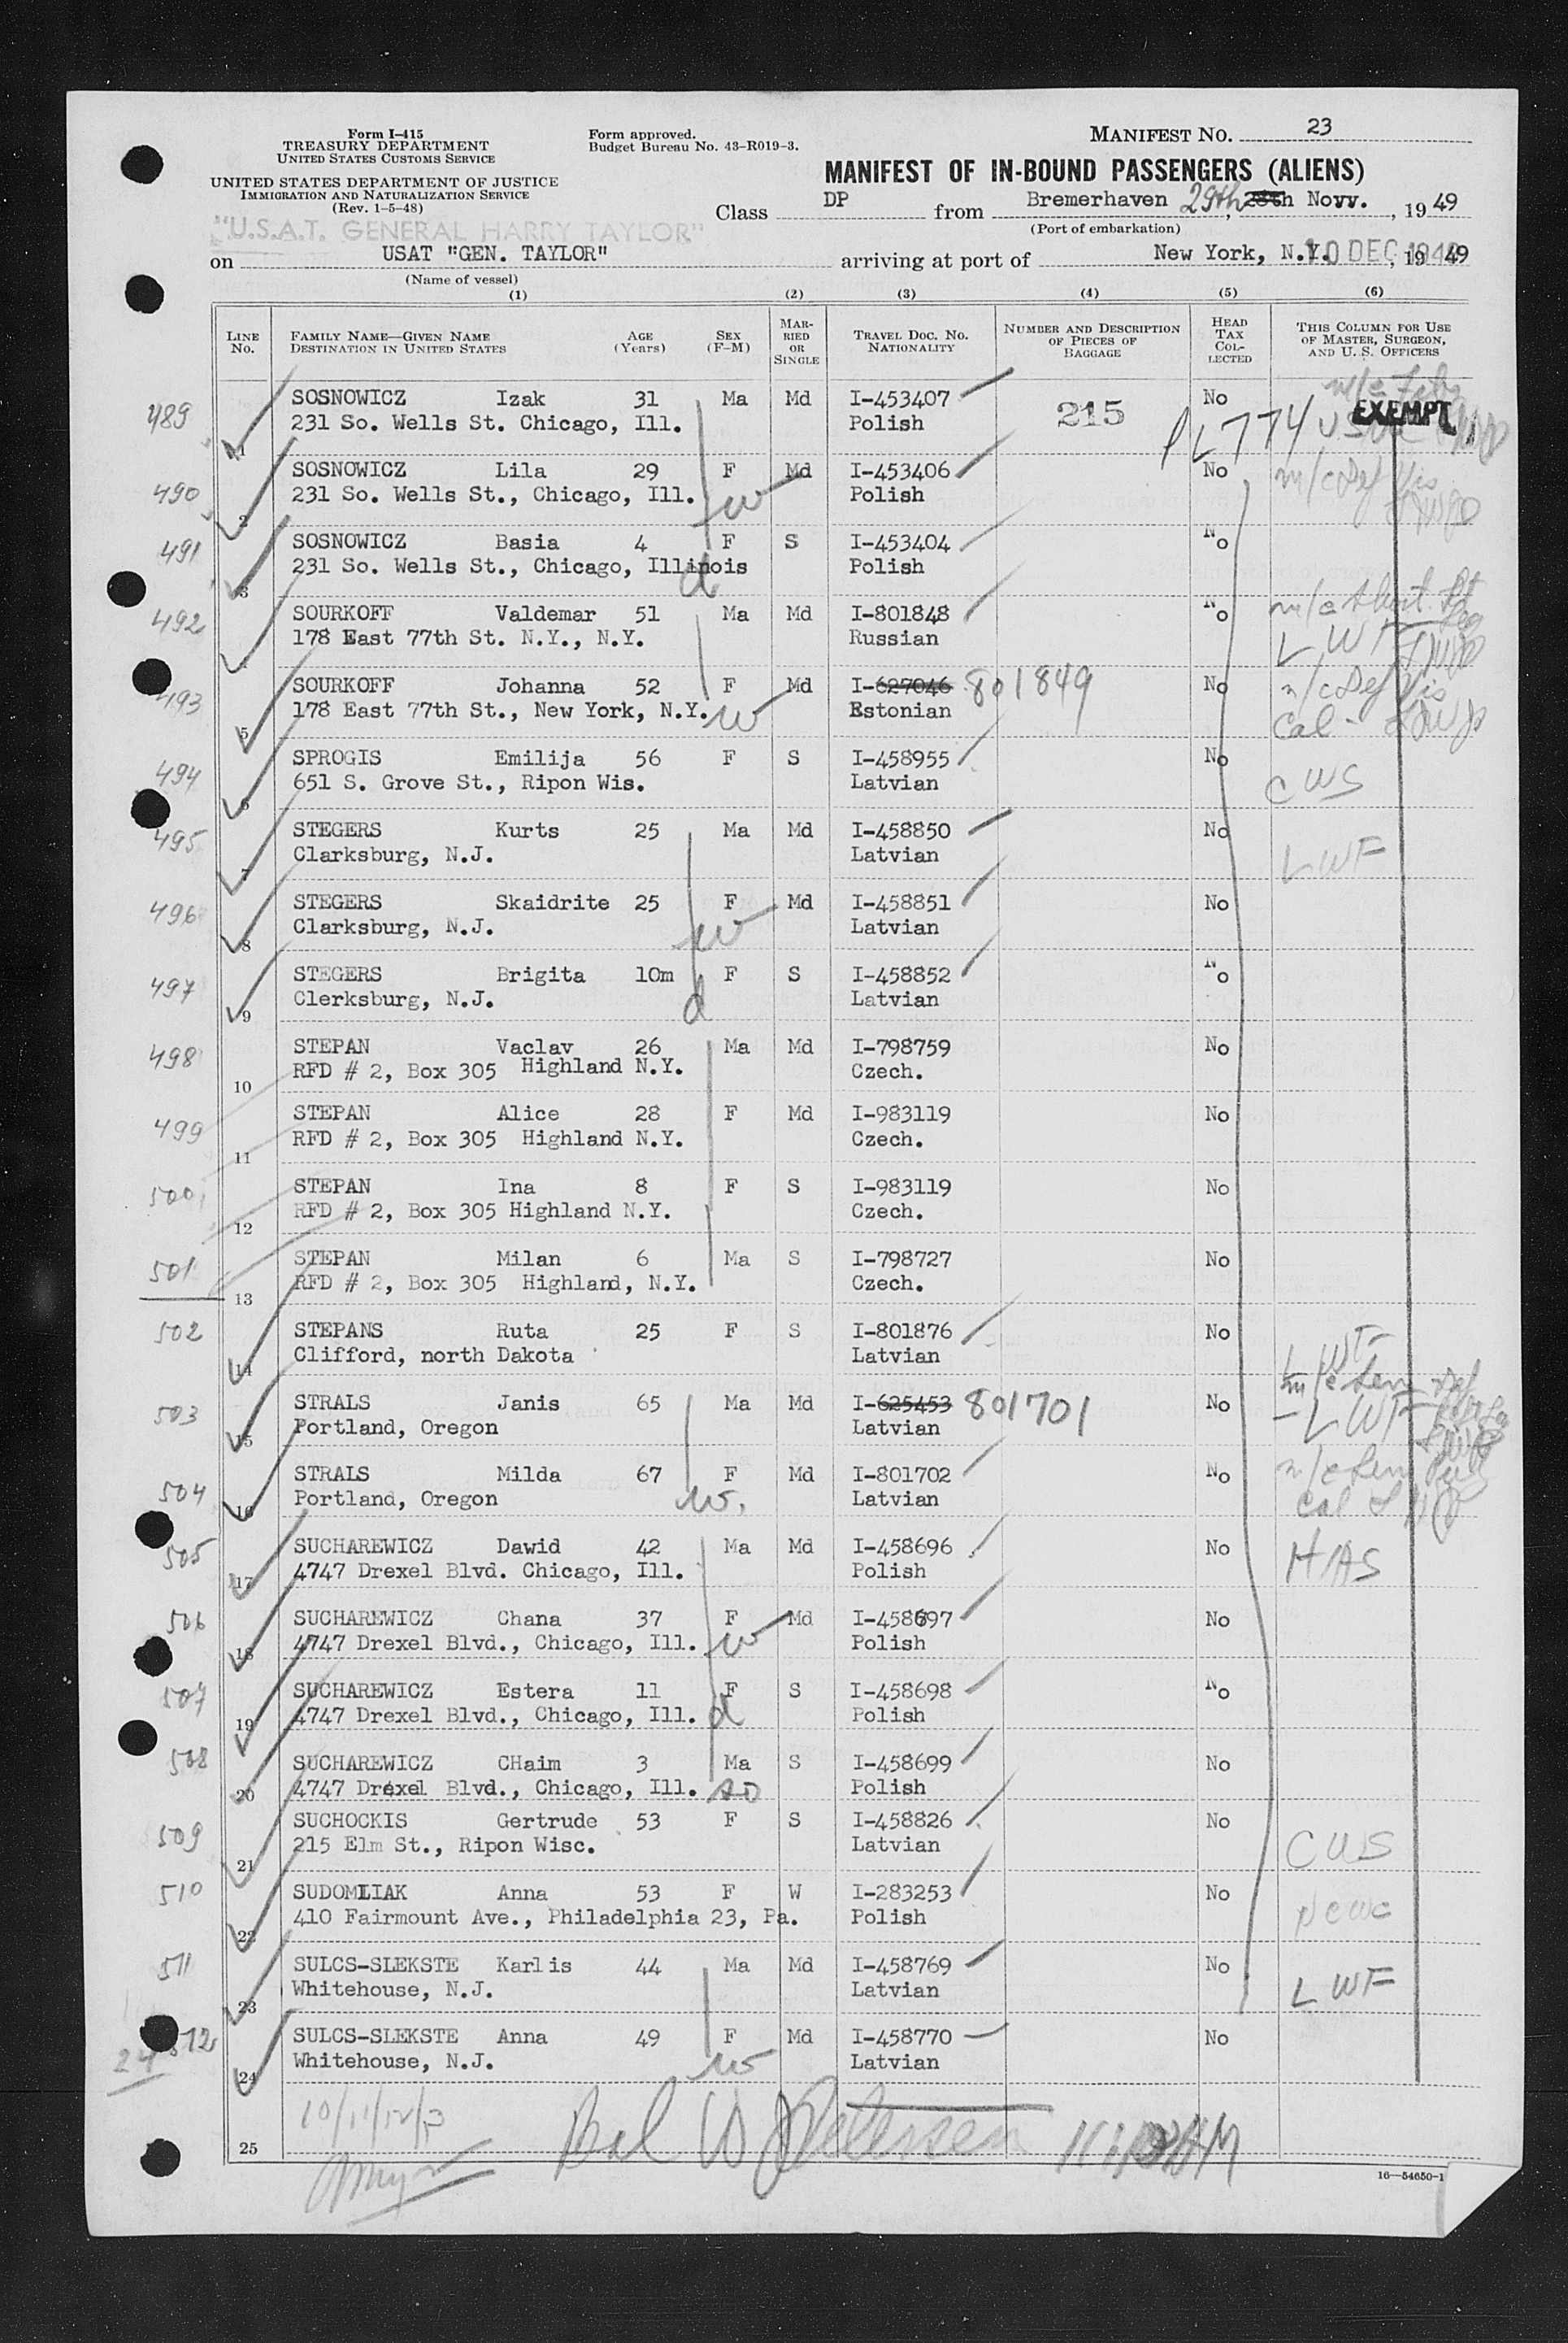 Form I-415
TREASURY DEPARTMENT
UNITED STATES CUSTOMS SERVICE
Form approved.
Budget Bureau No. 43-R019-3.
MANIFEST NO. 23
UNITED STATES DEPARTMENT OF JUSTICE
IMMIGRATION AND NATURALIZATION SERVICE
(Rev. 1-5-48)
MANIFEST OF IN-BOUND PASSENGERS (ALIENS)
Class DP from Bremerhaven 29th, 28th Novv., 1949
(Port of embarkation)
"U.S.A.T. GENERAL HARRY TAYLOR"
on USAT "GEN. TAYLOR" arriving at port of New York, N.Y. 10 DEC 1949, 1949
(Name of vessel)
(1) (2) (3) (4) (5) (6)
LINE NO. FAMILY NAME—GIVEN NAME DESTINATION IN UNITED STATES AGE (Years) SEX (F-M) MARRIED OR SINGLE TRAVEL DOC. NO. NATIONALITY NUMBER AND DESCRIPTION OF PIECES OF BAGGAGE HEAD TAX COLLECTED THIS COLUMN FOR USE OF MASTER, SURGEON, AND U. S. OFFICERS
489 1 SOSNOWICZ Izak 31 Ma Md I-453407 215 No EXEMPT
231 So. Wells St. Chicago, Ill. Polish PL774
490 2 SOSNOWICZ Lila 29 F Md I-453406 No
231 So. Wells St., Chicago, Ill. w Polish
491 3 SOSNOWICZ Basia 4 F S I-453404 No
231 So. Wells St., Chicago, Illinois d Polish
492 4 SOURKOFF Valdemar 51 Ma Md I-801848 No
178 East 77th St. N.Y., N.Y. Russian LWF
493 5 SOURKOFF Johanna 52 F Md I-627046 801849 No
178 East 77th St., New York, N.Y. w Estonian Cal.
494 6 SPROGIS Emilija 56 F S I-458955 No
651 S. Grove St., Ripon Wis. Latvian CWS
495 7 STEGERS Kurts 25 Ma Md I-458850 No
Clarksburg, N.J. Latvian LWF
496 8 STEGERS Skaidrite 25 F Md I-458851 No
Clarksburg, N.J. w Latvian
497 9 STEGERS Brigita 10m F S I-458852 No
Clerksburg, N.J. d Latvian
498 10 STEPAN Vaclav 26 Ma Md I-798759 No
RFD # 2, Box 305 Highland N.Y. Czech.
499 11 STEPAN Alice 28 F Md I-983119 No
RFD # 2, Box 305 Highland N.Y. Czech.
500 12 STEPAN Ina 8 F S I-983119 No
RFD # 2, Box 305 Highland N.Y. Czech.
501 13 STEPAN Milan 6 Ma S I-798727 No
RFD # 2, Box 305 Highland, N.Y. Czech.
502 14 STEPANS Ruta 25 F S I-801876 No
Clifford, north Dakota Latvian LWF
503 15 STRALS Janis 65 Ma Md I-625453 801701 No
Portland, Oregon Latvian LWF
504 16 STRALS Milda 67 F Md I-801702 No
Portland, Oregon w. Latvian Cal
505 17 SUCHAREWICZ Dawid 42 Ma Md I-458696 No
4747 Drexel Blvd. Chicago, Ill. Polish HIAS
506 18 SUCHAREWICZ Chana 37 F Md I-458697 No
4747 Drexel Blvd., Chicago, Ill. w Polish
507 19 SUCHAREWICZ Estera 11 F S I-458698 No
4747 Drexel Blvd., Chicago, Ill. d Polish
508 20 SUCHAREWICZ CHaim 3 Ma S I-458699 No
4747 Drexel Blvd., Chicago, Ill. so Polish
509 21 SUCHOCKIS Gertrude 53 F S I-458826 No
215 Elm St., Ripon Wisc. Latvian CWS
510 22 SUDOMLIAK Anna 53 F W I-283253 No
410 Fairmount Ave., Philadelphia 23, Pa. Polish NCWC
511 23 SULCS-SLEKSTE Karlis 44 Ma Md I-458769 No
Whitehouse, N.J. Latvian LWF
512 24 SULCS-SLEKSTE Anna 49 F Md I-458770 No
Whitehouse, N.J. w Latvian
24
10/11/12/13
25
16—54650-1